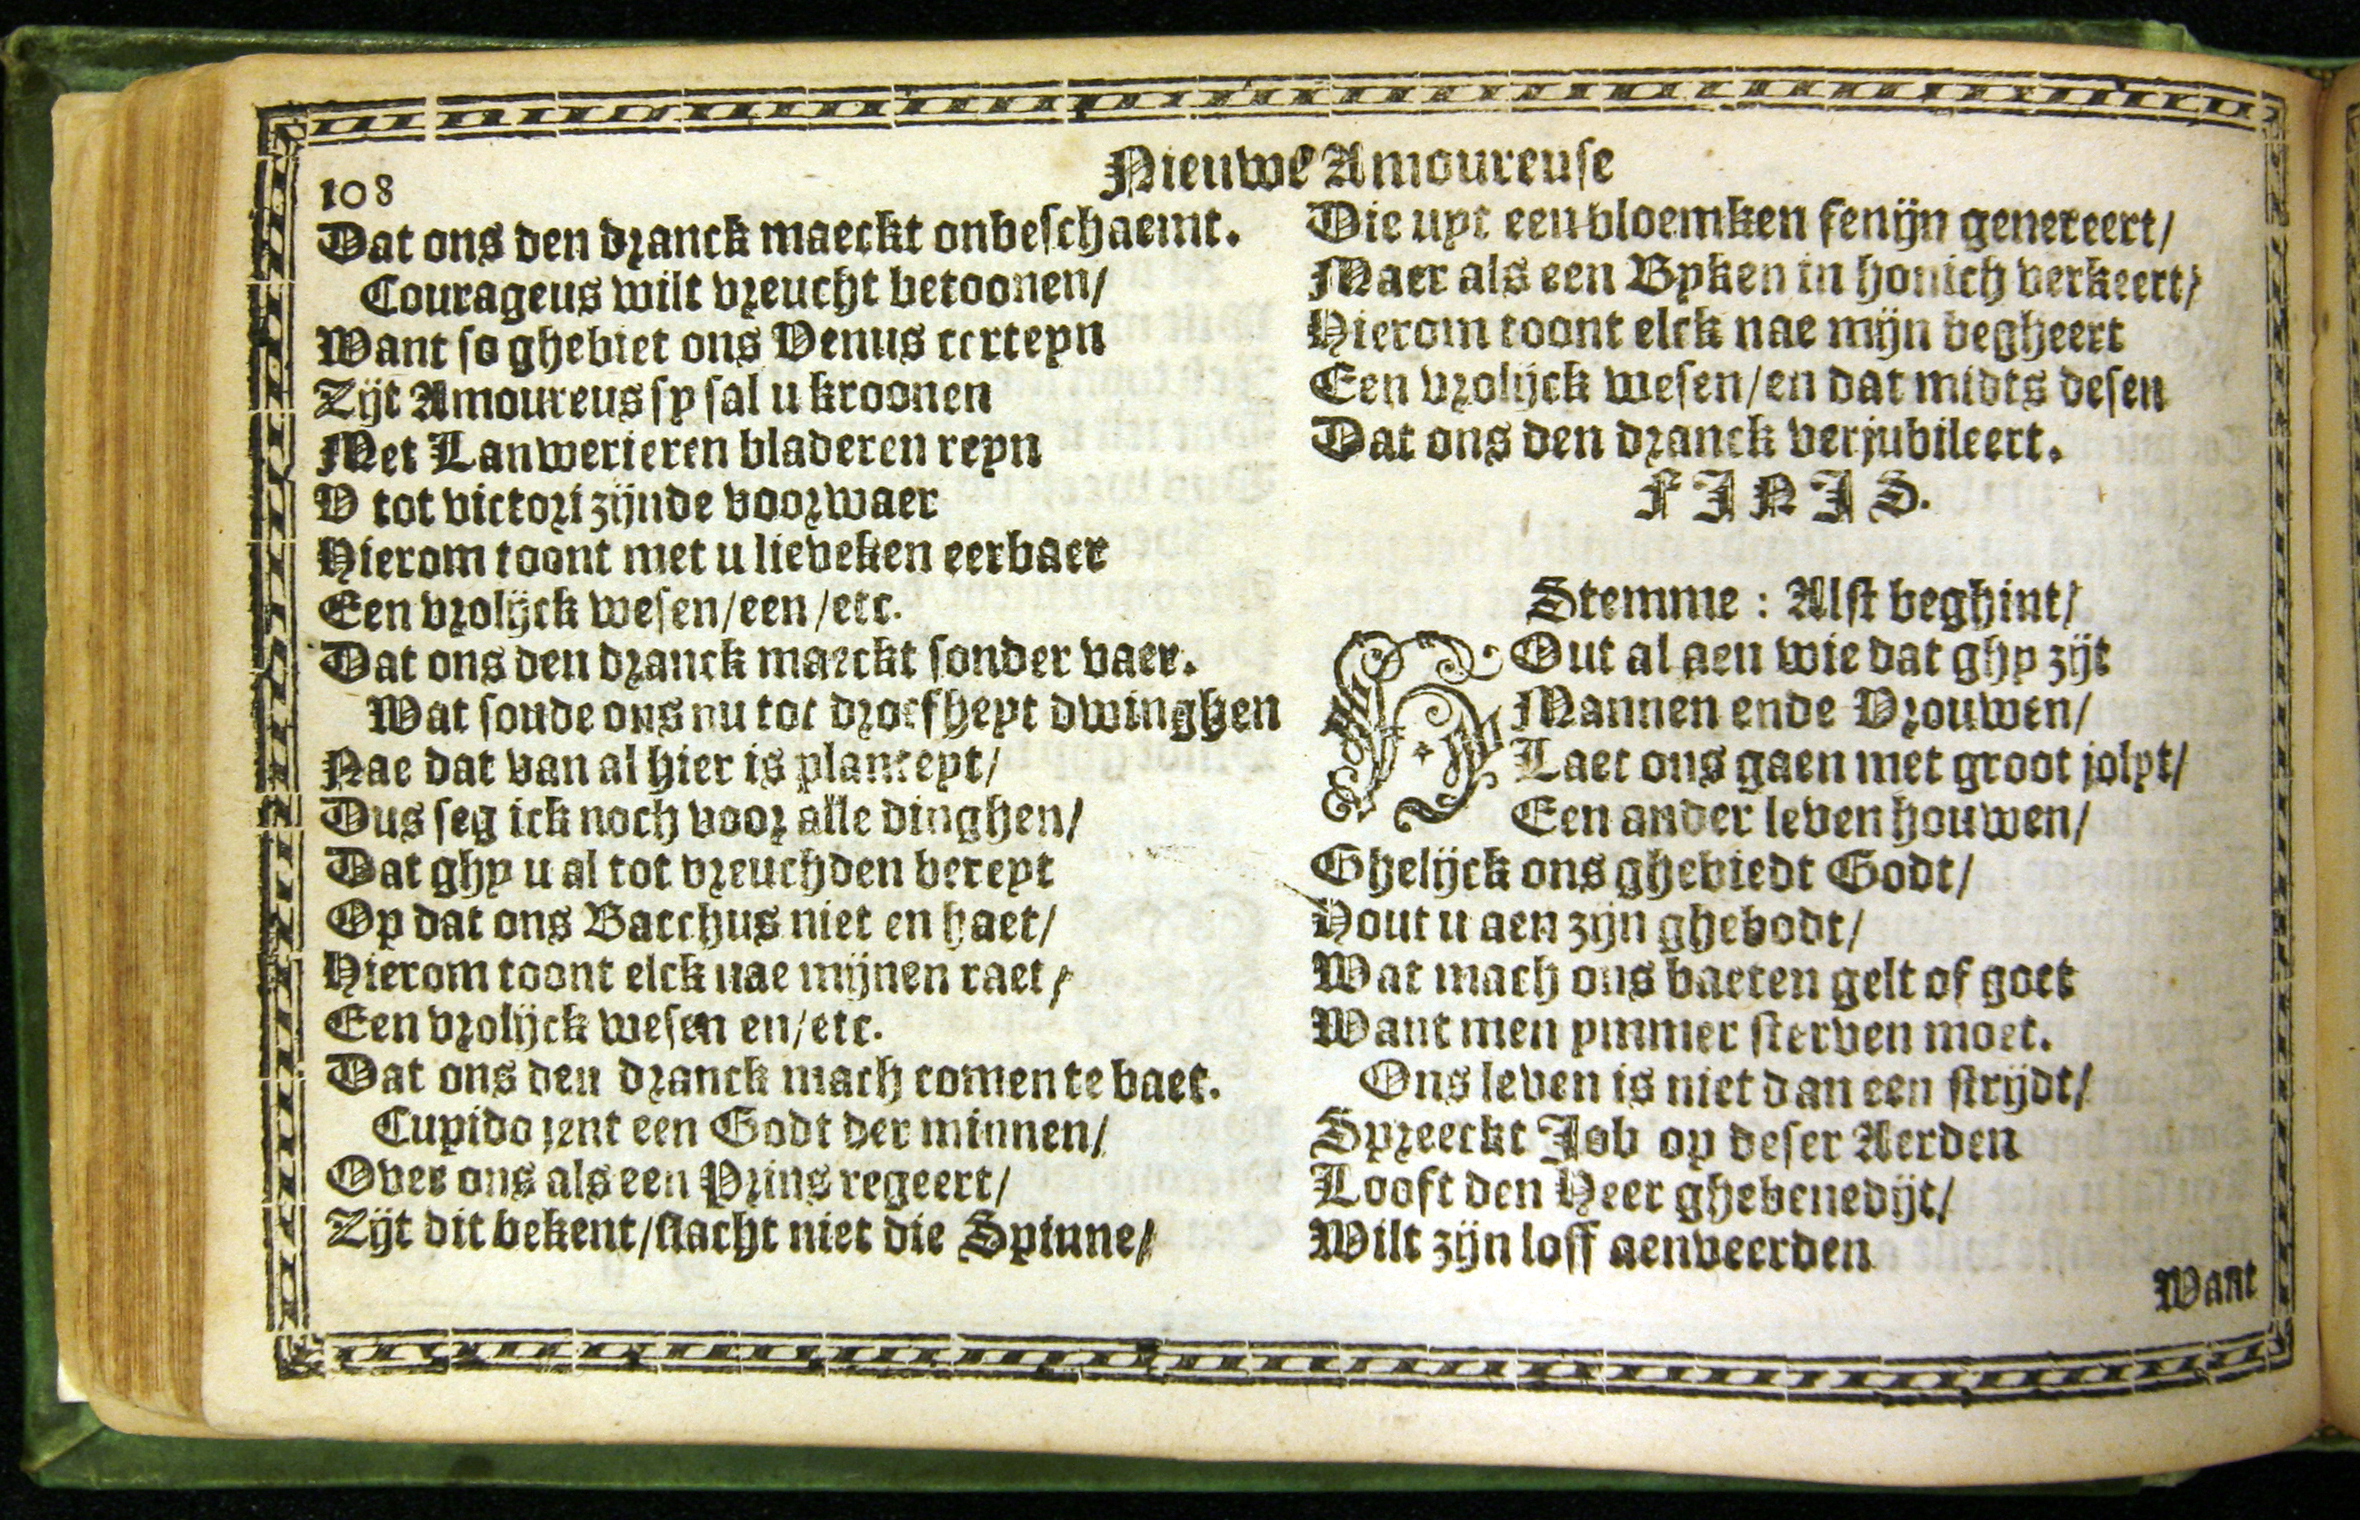 108
Nieuwe Amoureuse
Dat ons den dranck maeckt onbeschaemt.
Courageus wilt vreucht betoonen/
Want so ghebiet ons Venus certeyn
Zijt Amoureus sy sal u kroonen
Met Lanwerieren bladeren reyn
V tot victori zijnde voorwaer
Hierom toont met u lieveken eerbaer
Een vrolijck wesen/een/etc.
Dat ons den dranck maeckt sonder vaer.
Wat soude ons nu tot droefheyt dwinghen
Nae dat van al hier is planteyt/
Dus seg ick noch voor alle dinghen/
Dat ghy u al tot vreuchden bereyt
Op dat ons Bacchus niet en haet/
Hierom toont elck nae mijnen raet/
Een vrolijck wesen en/etc.
Dat ons den dranck mach comen te baet.
Cupido jent een Godt der minnen/
Over ons als een Prins regeert/
Zijt dit bekent/slacht niet die Spinne/
Die uyt een bloemken fenijn genereert/
Maer als een Byken in honich verkeert/
Hierom toont elck nae mijn begheert
Een vrolijck wesen/en dat midts desen
Dat ons den dranck verjubileert.
FINIS.
Stemme : Alst beghint/
HOut al aen wie dat ghy zijt
Mannen ende Vrouwen/
Laet ons gaen met groot jolyt/
Een ander leven houwen/
Ghelijck ons ghebiedt Godt/
Hout u aen zijn ghebodt/
Wat mach ons baeten gelt of goet
Want men ymmer sterven moet.
Ons leven is niet dan een strijdt/
Spreeckt Job op deser Aerden
Looft den Heer ghebenedijt/
Wilt zijn loff aenveerden
Want